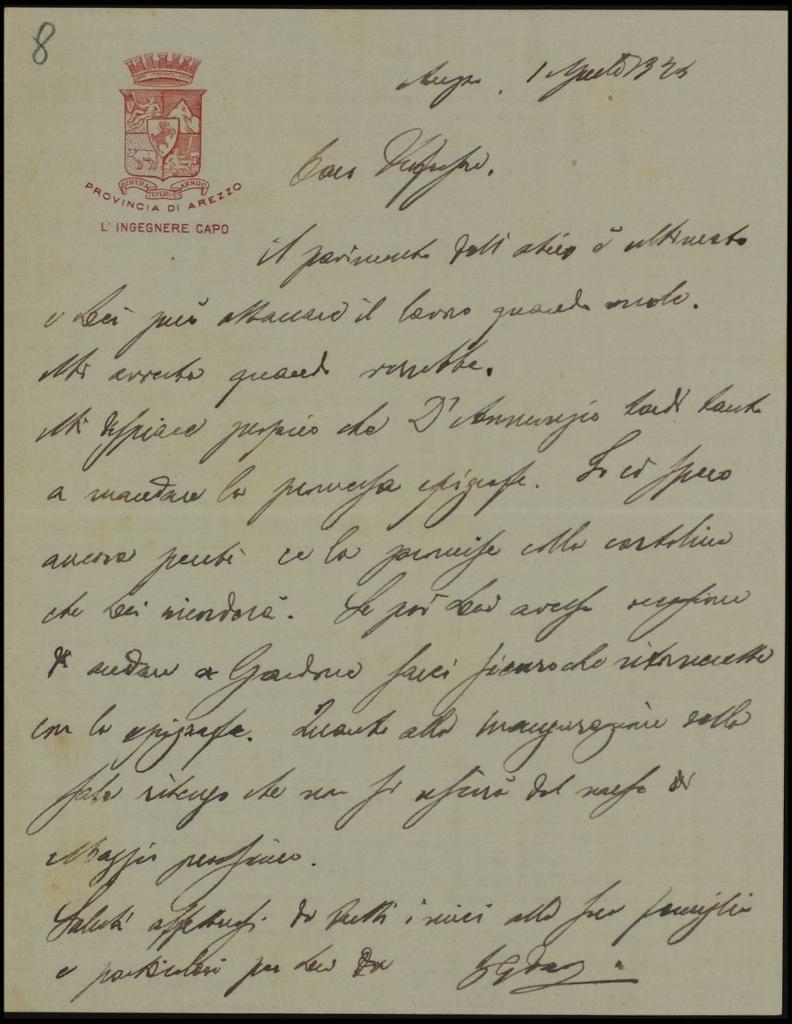 8
INTRA TEVERIM ARNOQ
PROVINCIA DI AREZZO
L'INGEGNERE CAPO
Arezzo, 1 Agosto
Caro
il pavimento dell'atrio è ultimato
e Lei può attaccare il lavoro quando vuole.
Mi avverta quando verrebbe.
Mi dispiace proprio che D'Annunzio tardi tanto
a mandare la promessa epigrafe. Io ci spero
ancora perché ce la promise colla cartolina
che Lei ricorderà. Se poi Lei avesse occasione
di andare a Gardone sarei sicuro che ritornerebbe
con la epigrafe. Quanto alla inaugurazione della
sala ritengo che non si uscirà dal mese di
Maggio prossimo.
Saluti affettuosi da tutti i miei alla sua famiglia
e particolari per Lei dal